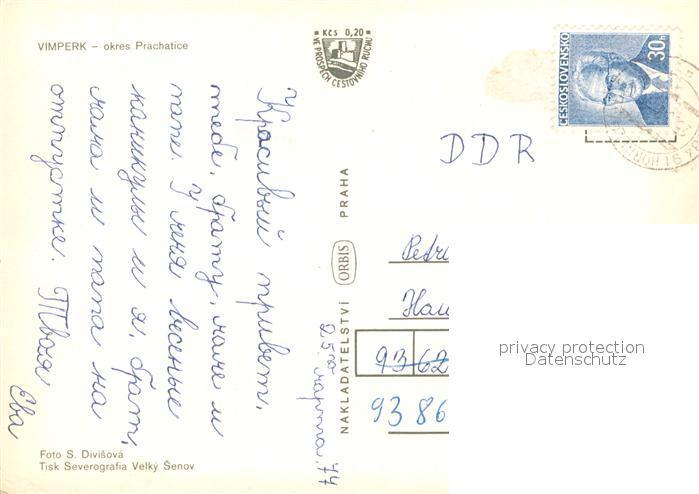 VIMPERK – okres Prachatice
Kčs 0,20
VE PROSPĚCH CESTOVNÍHO RUCHU
ČESKOSLOVENSKO
30h
DDR
Красивый привет,
тебе, брату, маме и
папе. У меня весеные
каникулы и я, брат,
мама и папа на
отпустке. Твоя
Ева
25го марта. 74
NAKLADATELSTVÍ ORBIS PRAHA
Petr
Hau
93 62
93 86
privacy protection
Datenschutz
Foto S. Divišová
Tisk Severografia Velký Šenov